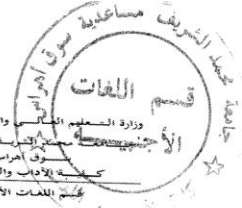 جامعة محمد الشريف مساعدية سوق أهراس
قسم اللغات
الأجنبية
وزارة التعليم العالي وال
محمد الشريف
سوق أهراس
كلية الآداب وال
قسم اللغات الأ